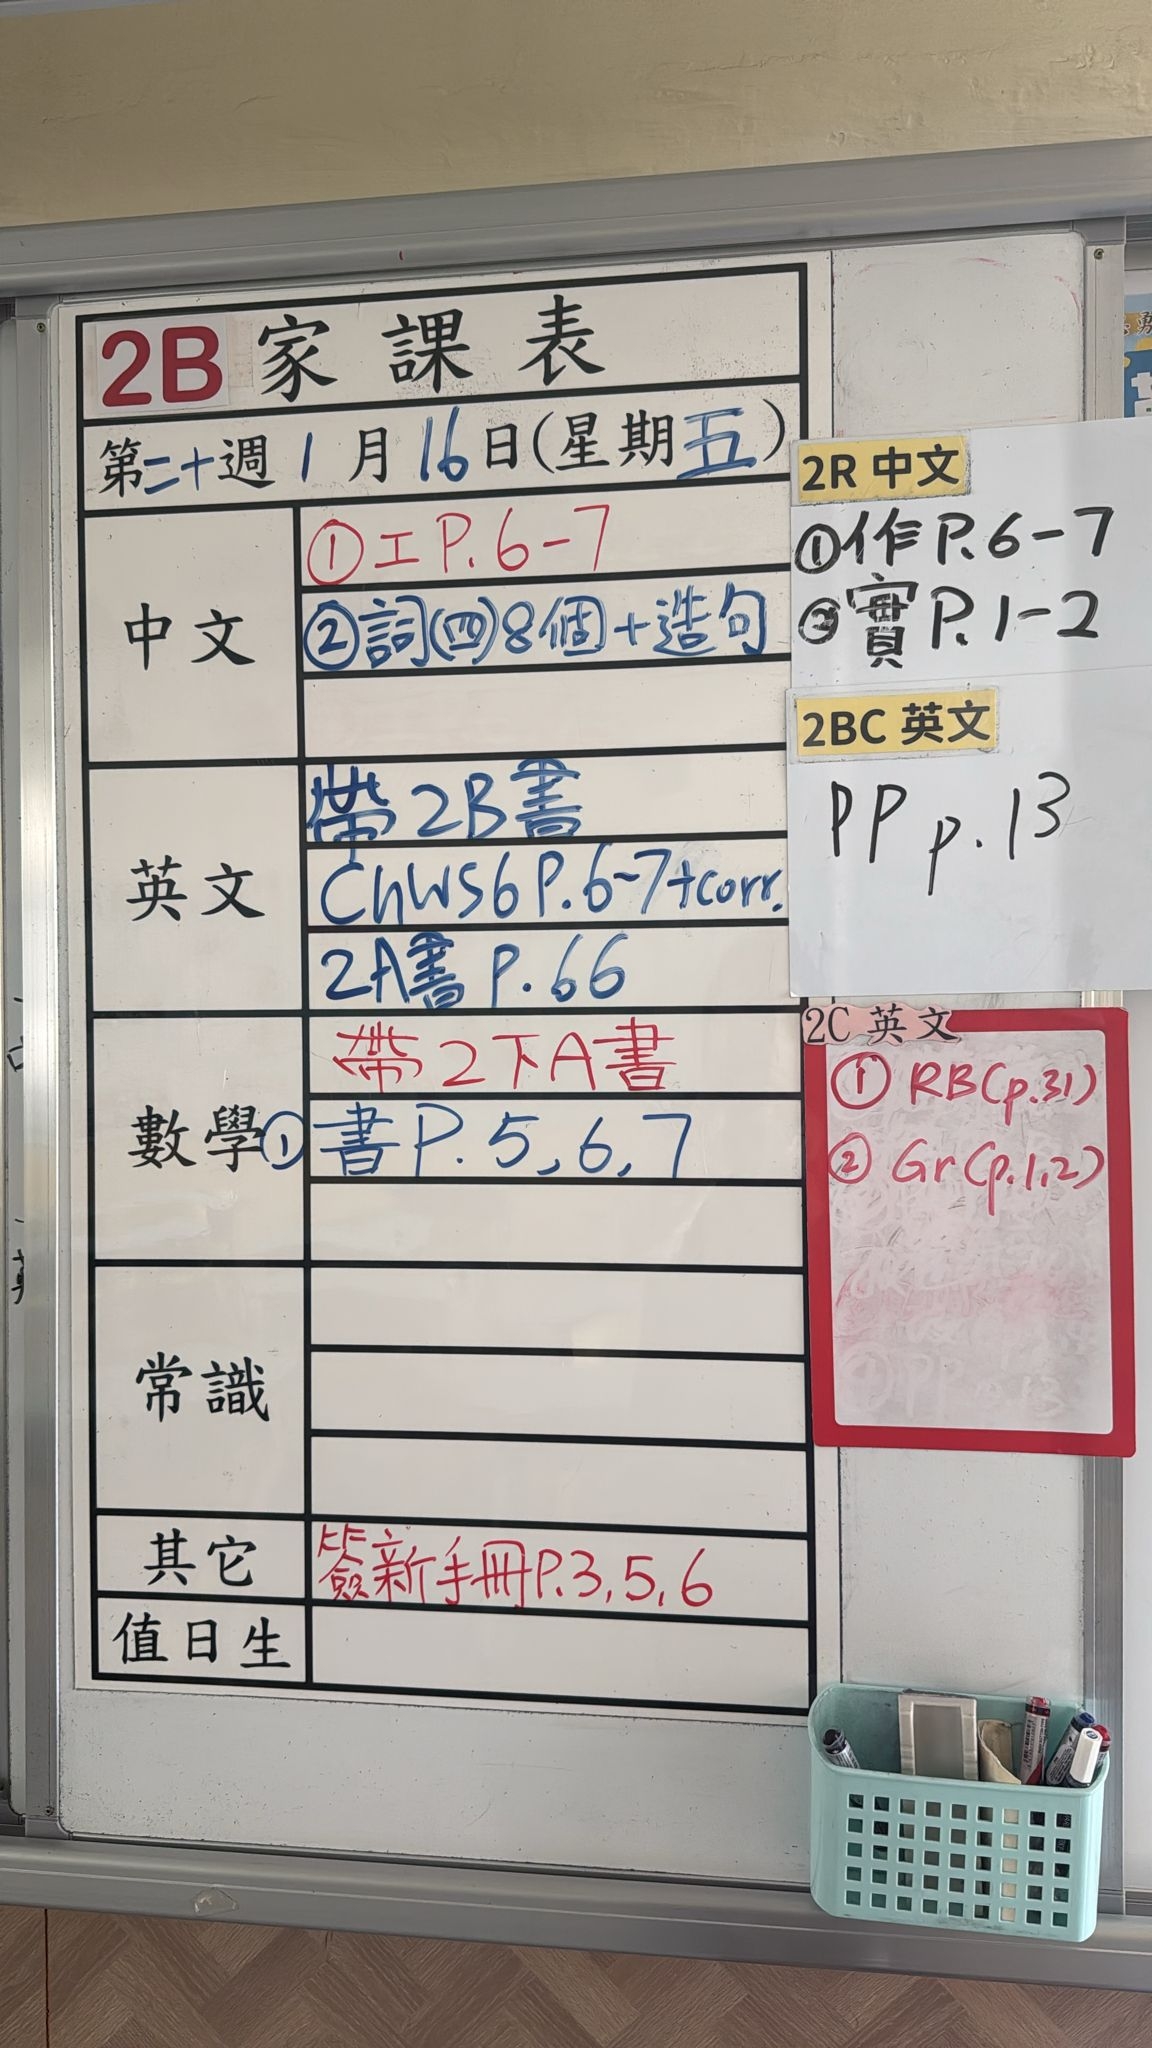 2B 家課表
第二十週 1月16日(星期五)
中文
①工P.6-7
②詞(四)8個+造句
英文
帶2B書
ChWS6 P.6-7+corr.
2A書 p.66
數學
帶2下A書
①書P.5,6,7
常識
其它
簽新手冊P.3,5,6
值日生
2R 中文
①作P.6-7
②實P.1-2
2BC 英文
PP p.13
2C 英文
① RB(p.31)
② Gr(p.1,2)